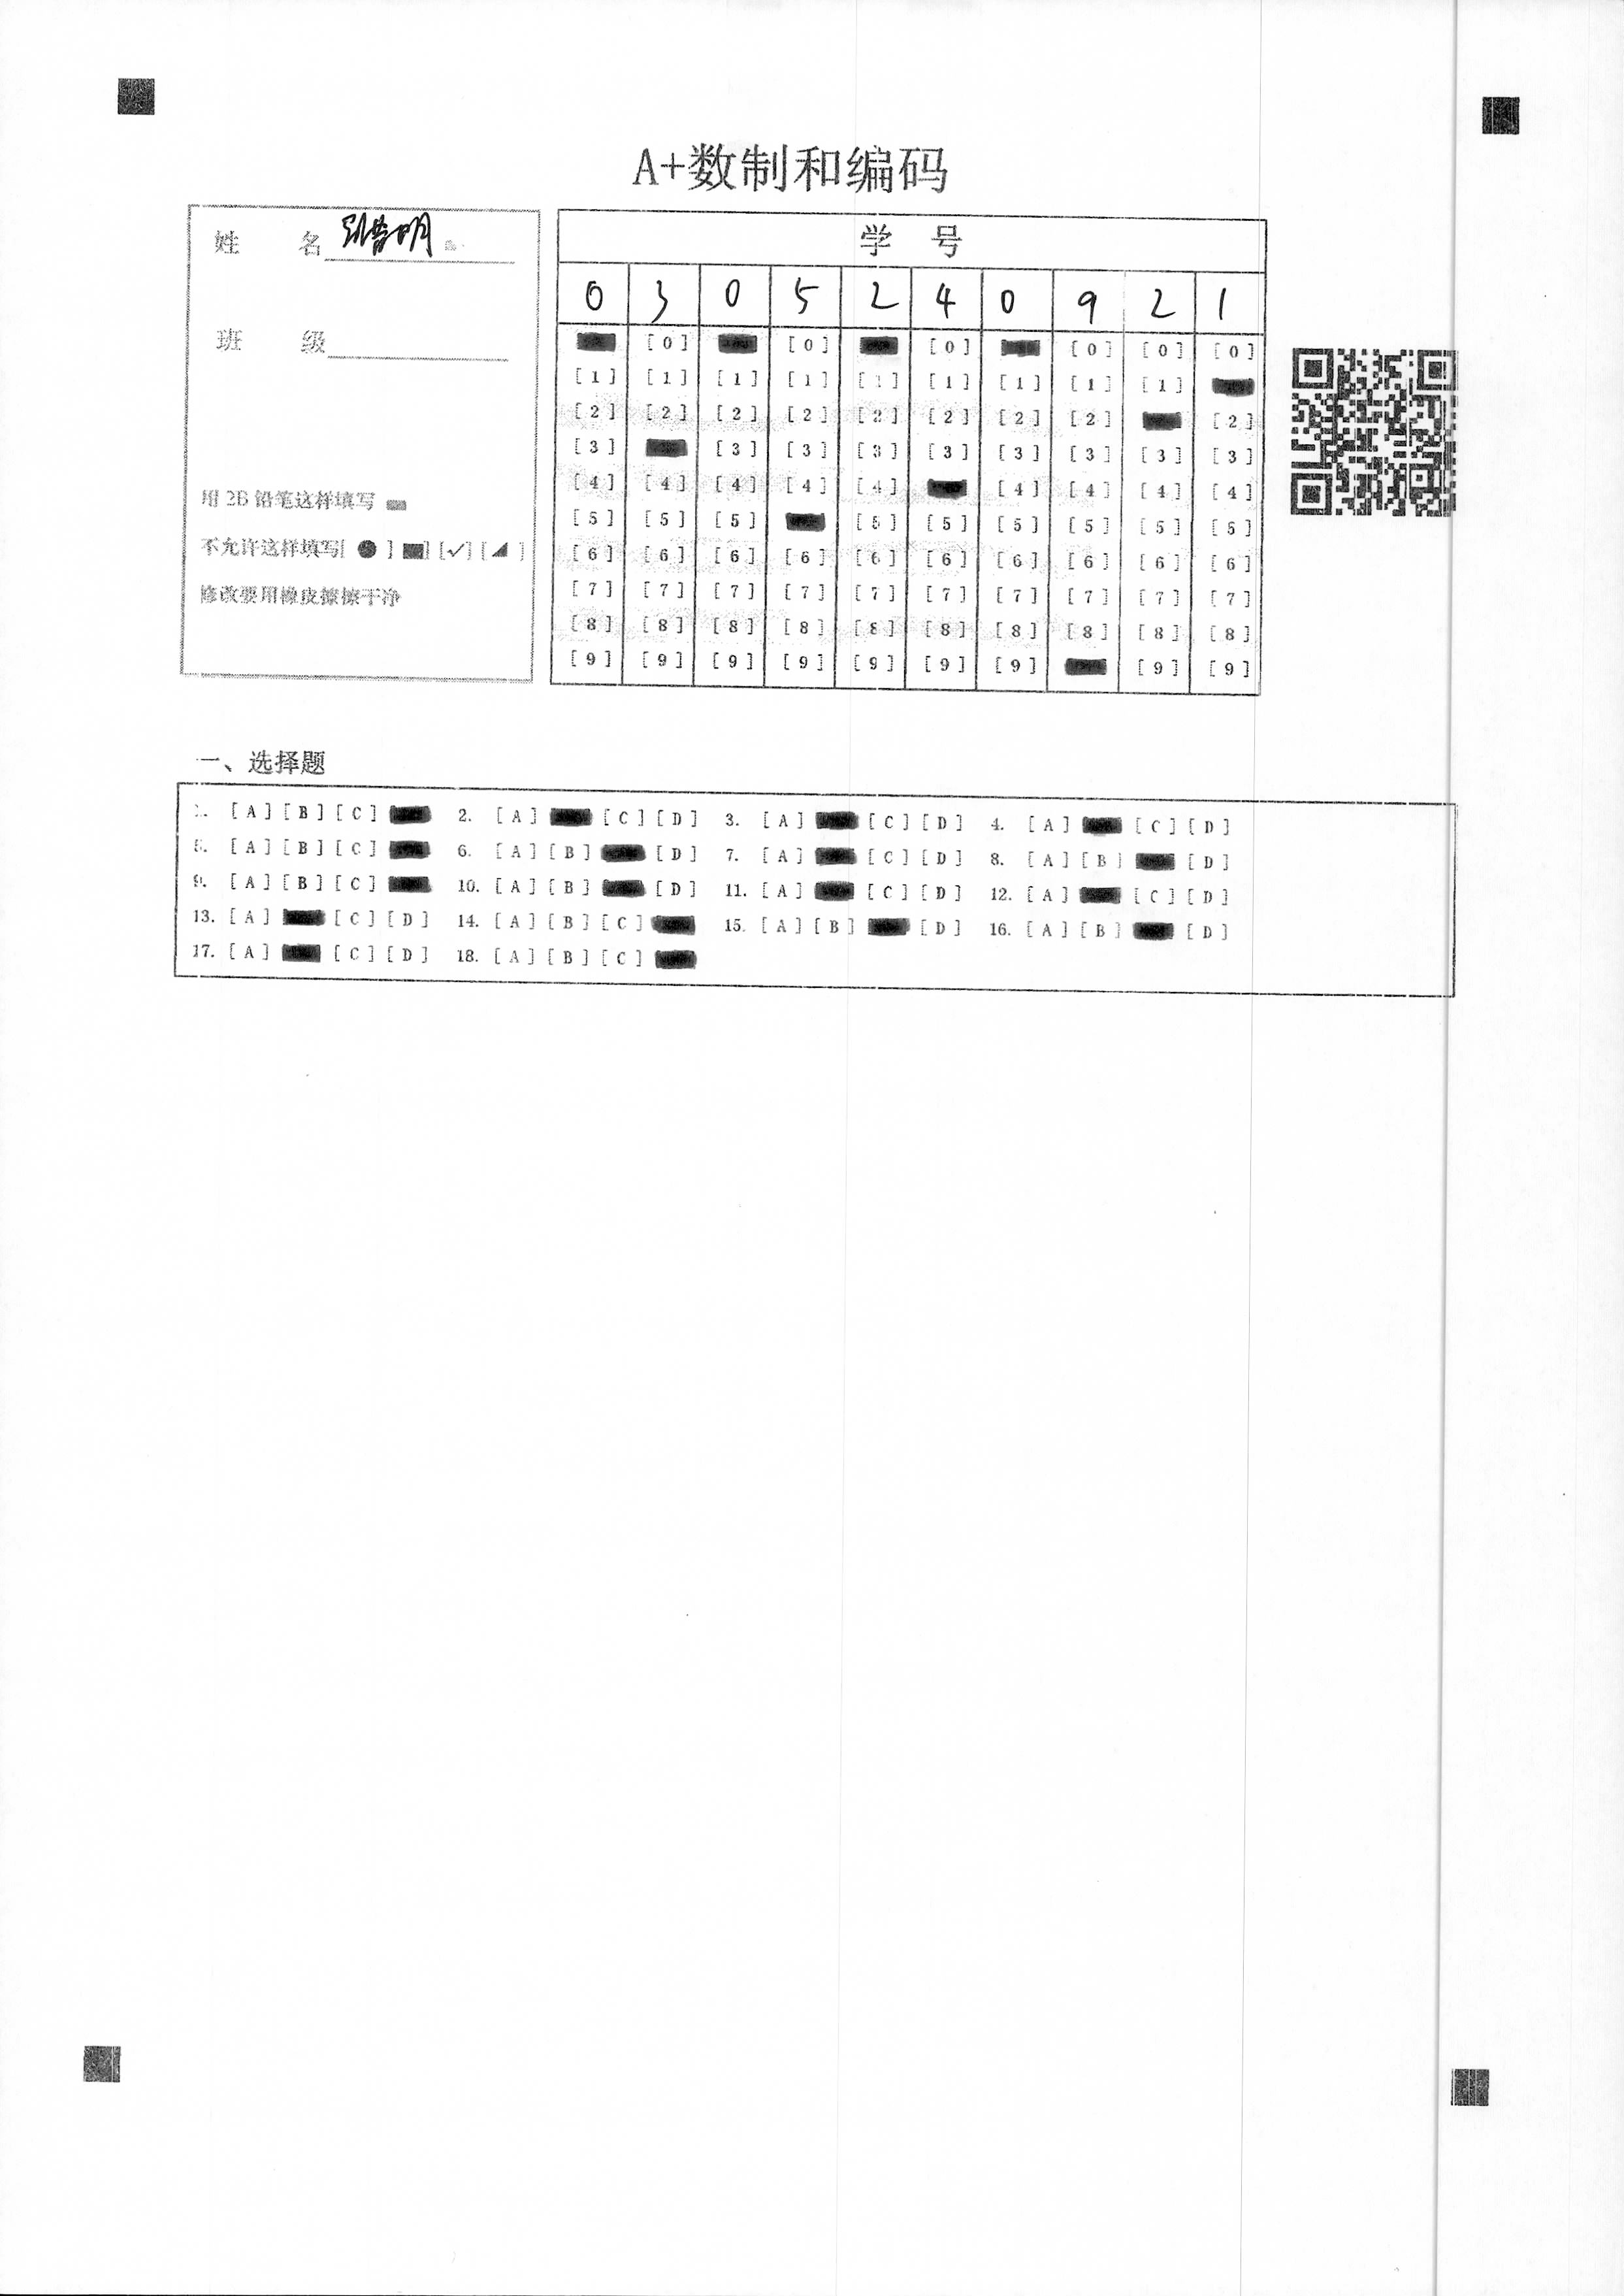 A+数制和编码
姓 名
班 级
用 2B 铅笔这样填写
不允许这样填写[ ● ] ■] [✓] [◢ ]
修改要用橡皮擦擦干净
学 号
0 3 0 5 2 4 0 9 2 1
[0] [0] [0] [0] [0] [0]
[1] [1] [1] [1] [1] [1] [1] [1] [1]
[2] [2] [2] [2] [2] [2] [2] [2] [2]
[3] [3] [3] [3] [3] [3] [3] [3] [3]
[4] [4] [4] [4] [4] [4] [4] [4] [4]
[5] [5] [5] [5] [5] [5] [5] [5] [5]
[6] [6] [6] [6] [6] [6] [6] [6] [6] [6]
[7] [7] [7] [7] [7] [7] [7] [7] [7] [7]
[8] [8] [8] [8] [8] [8] [8] [8] [8] [8]
[9] [9] [9] [9] [9] [9] [9] [9] [9]
一、选择题
1. [A] [B] [C] 2. [A] [C] [D] 3. [A] [C] [D] 4. [A] [C] [D]
5. [A] [B] [C] 6. [A] [B] [D] 7. [A] [C] [D] 8. [A] [B] [D]
9. [A] [B] [C] 10. [A] [B] [D] 11. [A] [C] [D] 12. [A] [C] [D]
13. [A] [C] [D] 14. [A] [B] [C] 15. [A] [B] [D] 16. [A] [B] [D]
17. [A] [C] [D] 18. [A] [B] [C]